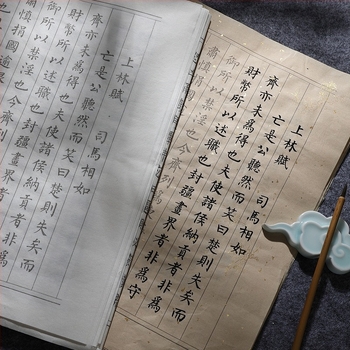 上林賦
司馬相如
亡是公聽然而笑曰楚則失矣而
齊亦未為得也夫使諸侯納貢者非為
財幣所以述職也封疆畫界者非為守
御所以禁淫也今齊列為
肅慎
上林賦
司馬相如
亡是公聽然而笑曰楚則失矣而
齊亦未為得也夫使諸侯納貢者非為
財幣所以述職也封疆畫界者
御所以禁淫也今齊列
肅慎捐國